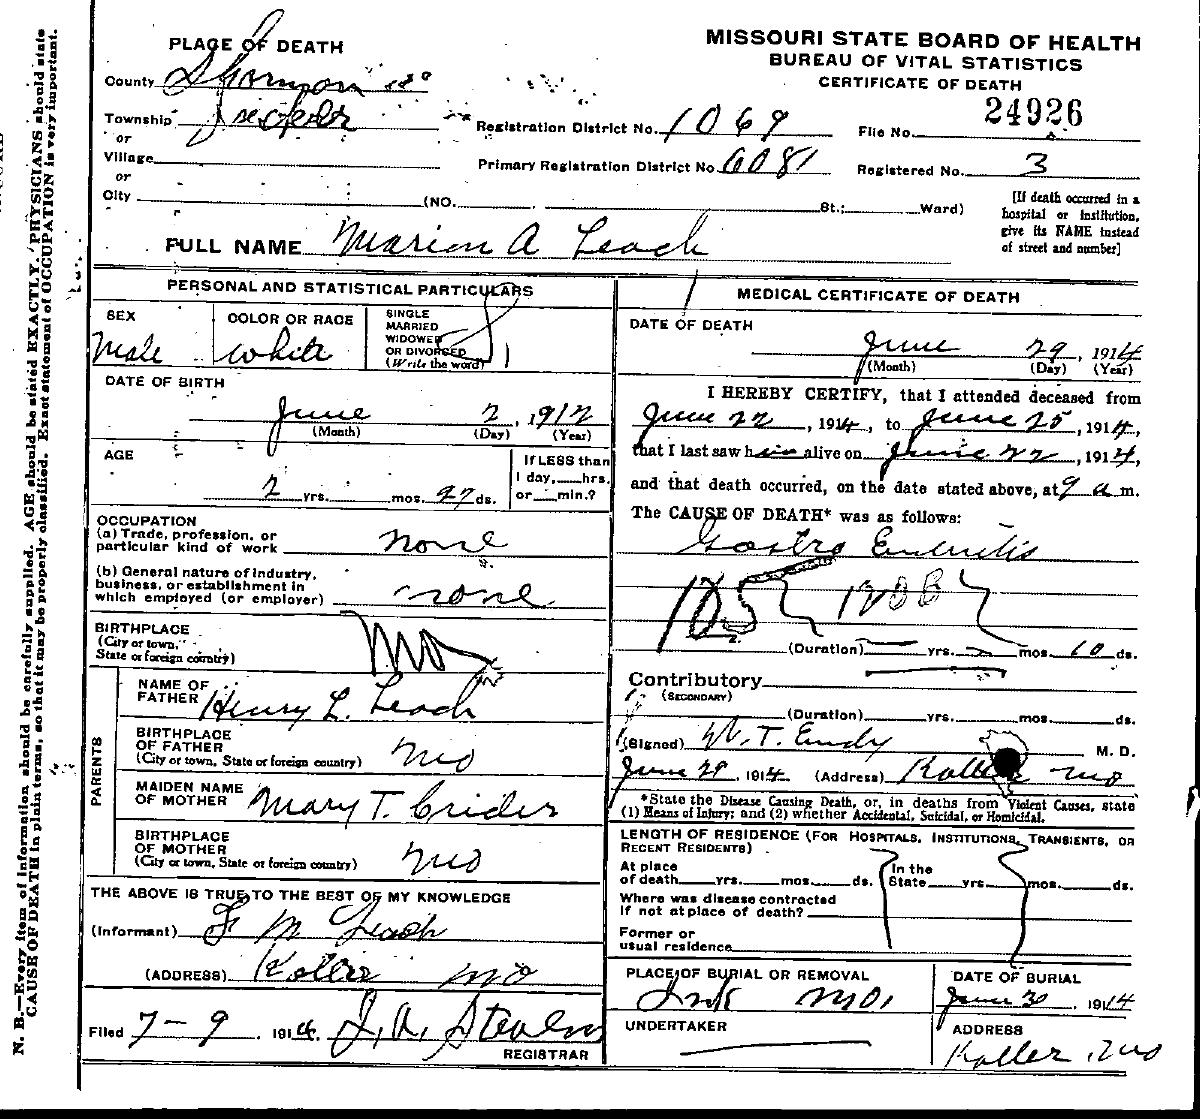 MISSOURI STATE BOARD OF HEALTH
BUREAU OF VITAL STATISTICS
CERTIFICATE OF DEATH
PLACE OF DEATH
County Shannon
Township
or
Village
or
City (NO. St.; Ward)
Registration District No. 1069
Primary Registration District No. 6081
File No. 24926
Registered No. 3
[If death occurred in a
hospital or institution,
give its NAME instead
of street and number]
FULL NAME Marion A Leach
PERSONAL AND STATISTICAL PARTICULARS
SEX
Male
COLOR OR RACE
White
SINGLE
MARRIED
WIDOWED
OR DIVORCED
(Write the word)
S
DATE OF BIRTH
June 2, 1912
(Month) (Day) (Year)
AGE
2 yrs. mos. 27 ds.
If LESS than
1 day, hrs.
or min.?
OCCUPATION
(a) Trade, profession, or
particular kind of work none
(b) General nature of industry,
business, or establishment in
which employed (or employer) none
BIRTHPLACE
(City or town,
State or foreign country) Mo
PARENTS
NAME OF
FATHER Henry L. Leach
BIRTHPLACE
OF FATHER
(City or town, State or foreign country) Mo
MAIDEN NAME
OF MOTHER Mary T. Crider
BIRTHPLACE
OF MOTHER
(City or town, State or foreign country) Mo
THE ABOVE IS TRUE TO THE BEST OF MY KNOWLEDGE
(Informant) F M Leach
(ADDRESS) Mo
Filed 7-9, 1914 J. A. Stevens
REGISTRAR
MEDICAL CERTIFICATE OF DEATH
DATE OF DEATH
June 29, 1914
(Month) (Day) (Year)
I HEREBY CERTIFY, that I attended deceased from
June 22, 1914, to June 25, 1914,
that I last saw him alive on June 22, 1914,
and that death occurred, on the date stated above, at 9 a m.
The CAUSE OF DEATH* was as follows:
Gastro Enteritis
105
(Duration) yrs. mos. 10 ds.
Contributory
(SECONDARY)
(Duration) yrs. mos. ds.
(Signed) W. T. Eudy M. D.
June 29, 1914 (Address) Koller Mo
*State the Disease Causing Death, or, in deaths from Violent Causes, state
(1) Means of Injury; and (2) whether Accidental, Suicidal, or Homicidal.
LENGTH OF RESIDENCE (FOR HOSPITALS, INSTITUTIONS, TRANSIENTS, OR
RECENT RESIDENTS)
At place
of death yrs. mos. ds.
In the
State yrs. mos. ds.
Where was disease contracted
if not at place of death?
Former or
usual residence
PLACE OF BURIAL OR REMOVAL
Ink Mo.
DATE OF BURIAL
June 30, 1914
UNDERTAKER
ADDRESS
Koller Mo
N. B.—Every item of information should be carefully supplied. AGE should be stated EXACTLY. PHYSICIANS should state
CAUSE OF DEATH in plain terms, so that it may be properly classified. Exact statement of OCCUPATION is very important.